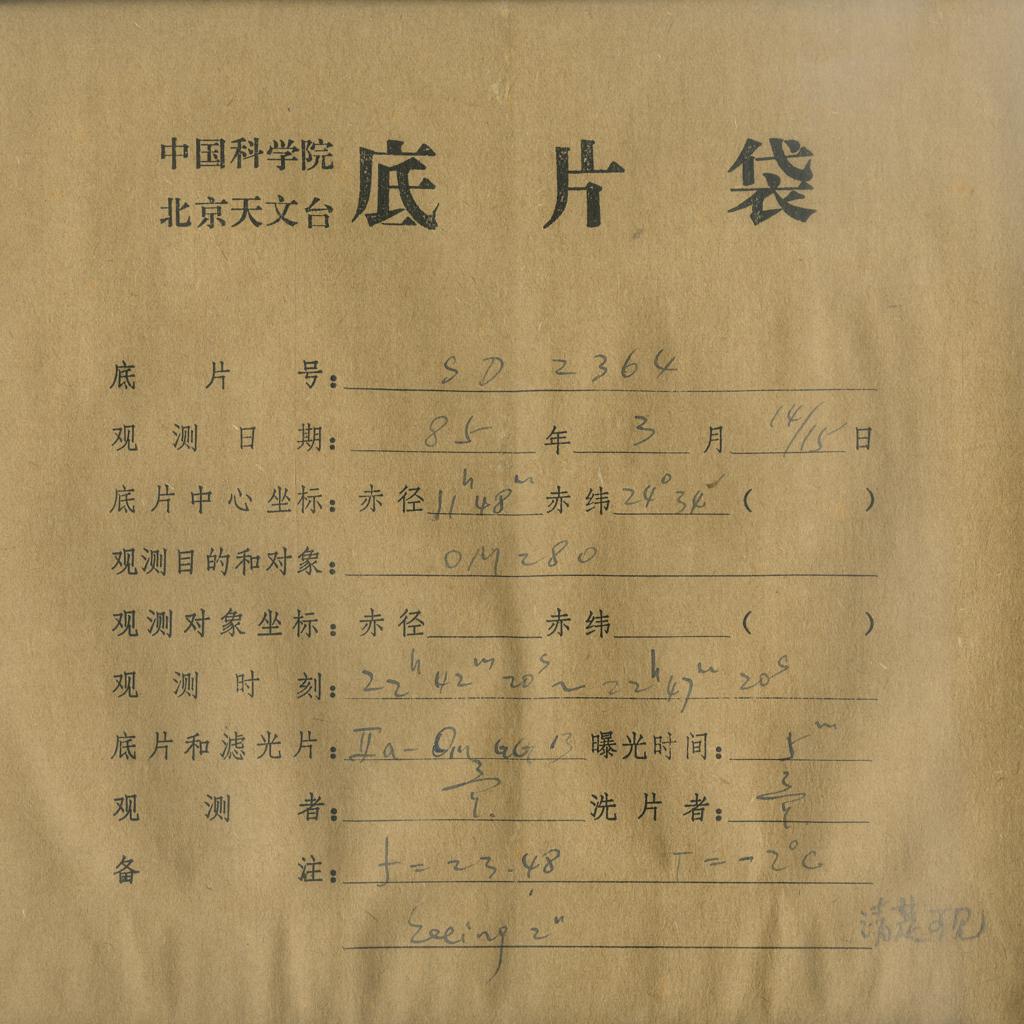 中国科学院
北京天文台
底片袋
底片号：SD 2364
观测日期：85年3月14/15日
底片中心坐标：赤径11ʰ48ᵐ赤纬24°34′（ ）
观测目的和对象：OM 280
观测对象坐标：赤径 赤纬 （ ）
观测时刻：22ʰ42ᵐ20ˢ～22ʰ47ᵐ20ˢ
底片和滤光片：IIa-O GG 13 曝光时间：5ᵐ
观测者： 洗片者：
备注：f=23.48 T=-2°C
Seeing 2"
清楚可见